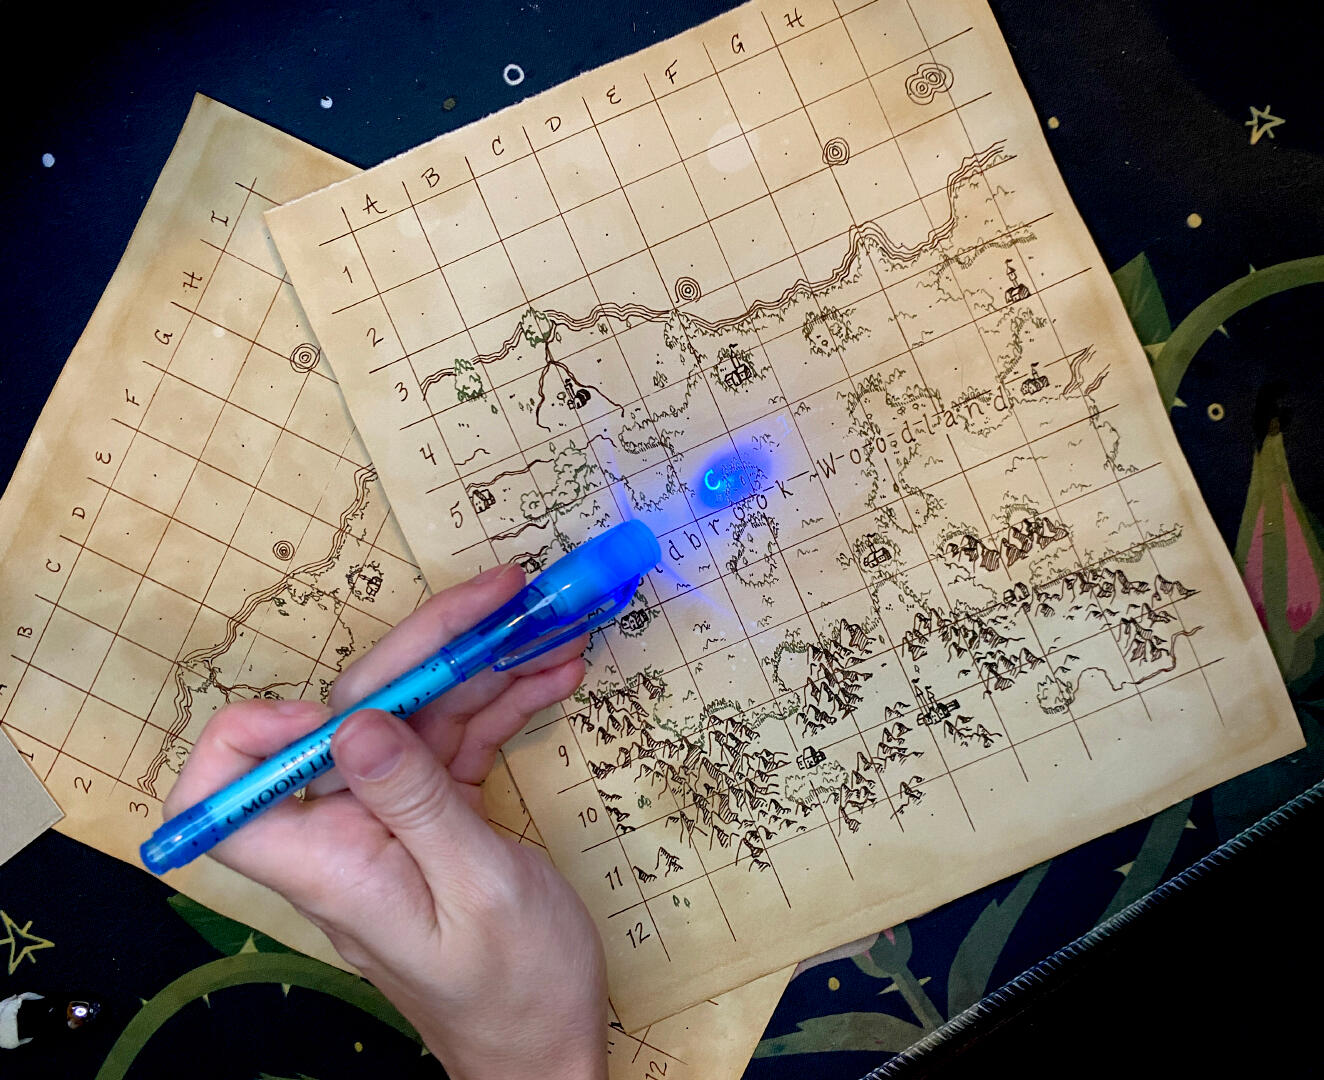 A B C D E F G H
1
2
3
4
5
9
10
11
12
C
ldbrook Woodland
MOON LI
I
H
G
F
E
D
C
B
A
1
2
3
12